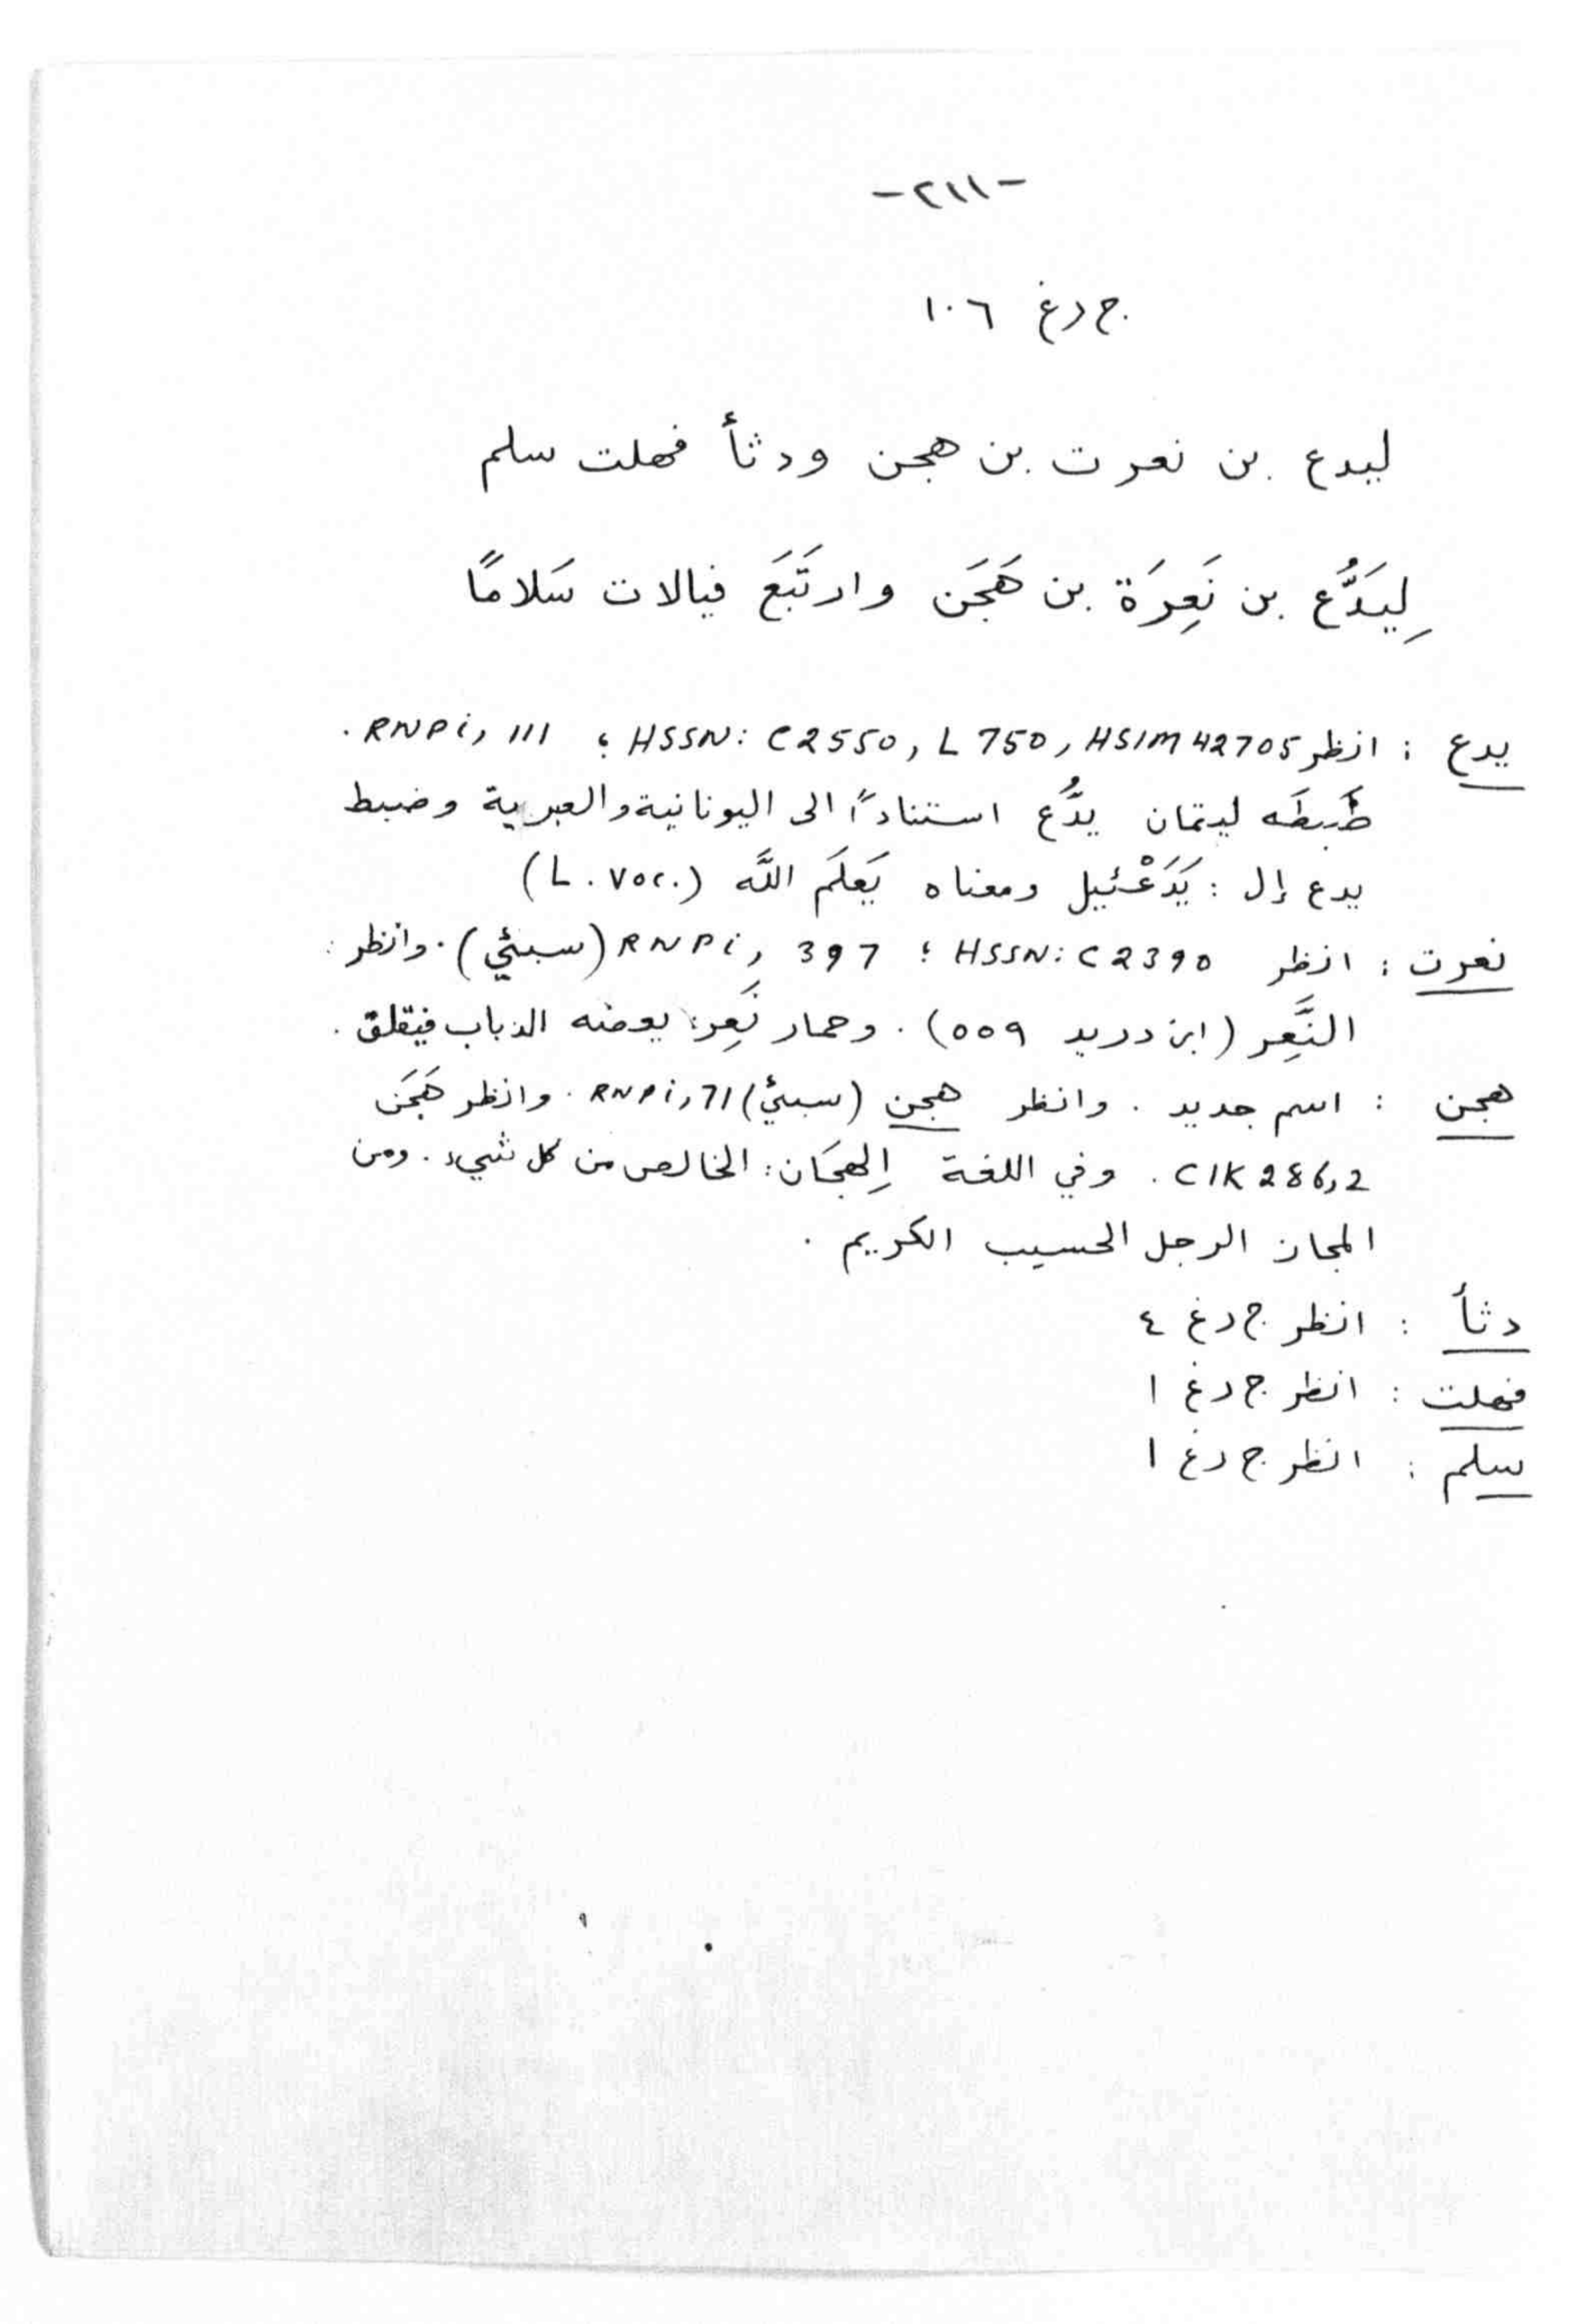 -٢١١-
ج دغ ١٠٦
ليدع بن نعرت بن هجن ودثأ فهلت سلم
لِيَدُّع بن نَعِرَة بن هَجَن وارتَبَعَ فيالات سَلامًا
يدع : انظر HSSN: C2550, L 750, HSIM 42705 ؛ RNP i, 111 .
ضَبطَه ليتمان يدُّع استناداً الى اليونانية والعبرية وضبط
يدع إل : يَدَعْئيل ومعناه يَعلَم اللَّه (L. Voc.)
نعرت : انظر HSSN: C2390 ؛ RNP i, 397 (سبئي) . وانظر :
النَّعِر (ابن دريد ٥٥٩) . وحمار نَعِر: يعضه الذباب فيقلق .
هجن : اسم جديد . وانظر هجن (سبئي) RNP i, 71 . وانظر هَجَن
CIK 286,2 . وفي اللغة الهِجَان: الخالص من كل شيء . ومن
المجاز الرجل الحسيب الكريم .
دثأ : انظر ج دغ ٤
فهلت : انظر ج دغ ١
سلم : انظر ج دغ ١